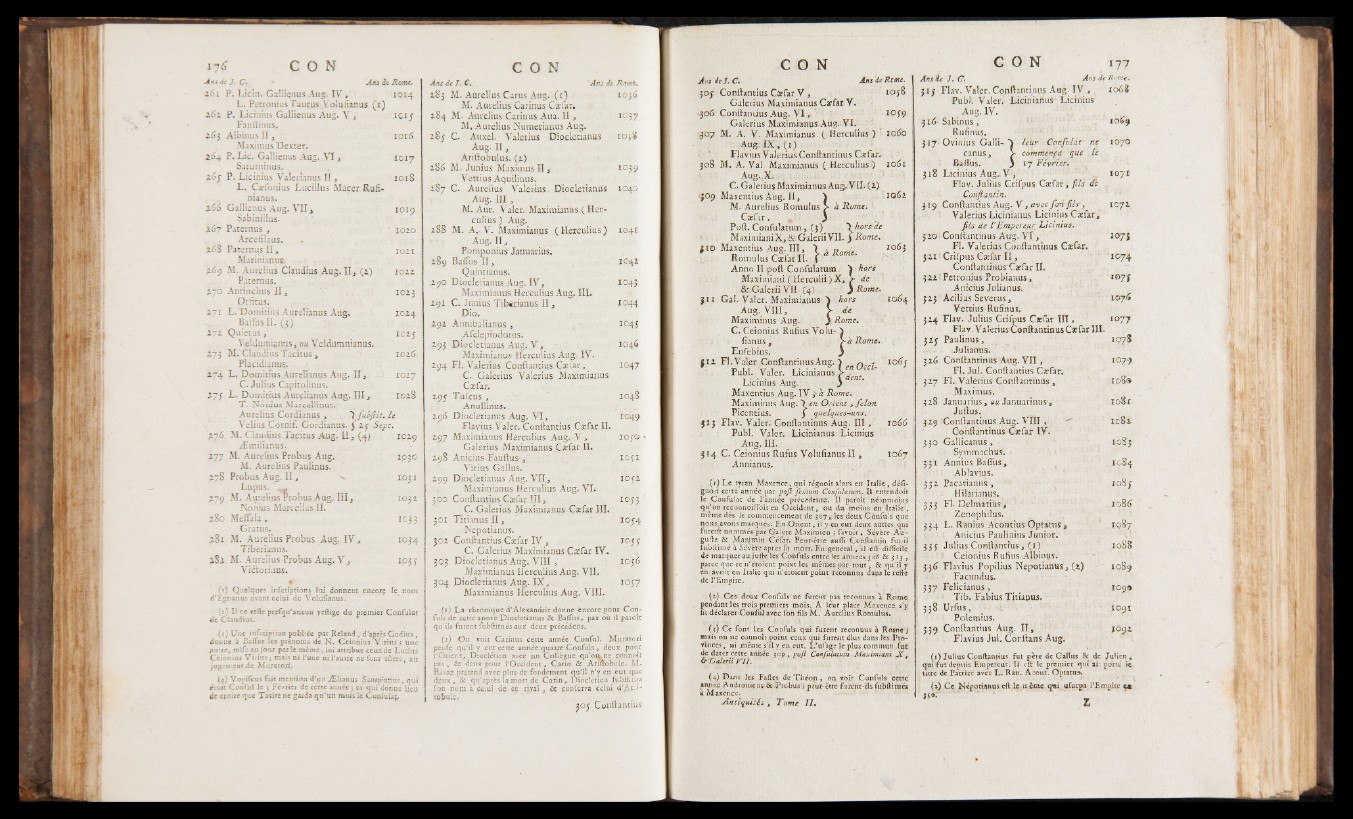 176 CON
Ans de J. C. Ans de Rome.
261 P. Licin. Gallienus Aug. IV, 1014
L. Petronius Taurus Volusianus (1)
262 P. Licinius Gallienus Aug. V, 1015
Faustinus.
263 Albinus II, 1016
Maximus Dexter.
264 P. Lic. Gallienus Aug. VI, 1017
Saturninus.
265 P. Licinius Valerianus II, 1018
L. Cæsonius Lucillus Macer Rufi-
nianus.
266 Gallienus Aug. VII, 1019
Sabinillus.
267 Paternus, 1020
Arcesilaus.
268 Paternus II, 1021
Marinianus.
269 M. Aurelius Claudius Aug. II, (2) 1022
Paternus.
270 Antiochus II, 1023
Orfitus.
271 L. Domitius Aurelianus Aug. 1024
Bassus II. (3)
272 Quietus, 1025
Veldumianus, ou Veldumnianus.
273 M. Claudius Tacitus, 1026
Placidianus.
274 L. Domitius Aurelianus Aug. II, 1027
C. Julius Capitolinus.
275 L. Domitius Aurelianus Aug. III, 1028
T. Nonius Marcellinus.
Aurelius Cordianus, } subst. le
Velius Cornif. Gordianus. } 25 Sept.
276 M. Claudius Tacitus Aug. II, (4) 1029
Æmilianus.
277 M. Aurelius Probus Aug. 1030
M. Aurelius Paulinus.
278 Probus Aug. II, 1031
Lupus.
279 M. Aurelius Probus Aug. III, 1032
Nonius Marcellus II.
280 Messala, 1033
Gratus.
281 M. Aurelius Probus Aug. IV, 1034
Tiberianus.
282 M. Aurelius Probus Aug. V, 1035
Victorianus.
(1) Quelques inscriptions lui donnent encore le nom
d'Egnatius avant celui de Volusianus.
(2) Il ne reste presqu'aucun vestige du premier Consulat
de Claudius.
(3) Une inscription publiée par Reland, d'après Gudius,
donne à Bassus les prénoms de N. Ceionius Virius : une
autre, mise au jour par le même, lui attribue ceux de Lucius
Ceionius Virius ; mais ni l'une ni l'autre ne sont sûres, au
jugement de Muratori.
(4) Vopiscus fait mention d'un Ælianus Scorpianus, qui
étoit Consul le 3 Février de cette année ; ce qui donne lieu
de croire que Tacite ne garda qu'un mois le Consulat.
CON
Ans de J. C. Ans de Rome.
283 M. Aurelius Carus Aug. (1) 1036
M. Aurelius Carinus Cæsar.
284 M. Aurelius Carinus Aua. II, 1037
M. Aurelius Numerianus Aug.
285 C. Auxel. Valerius Diocletianus 1038
Aug. II,
Aristobulus. (2)
286 M. Junius Maximus II, 1039
Vettius Aquilinus.
287 C. Aurelius Valerius Diocletianus 1040
Aug. III,
M. Aur. Valer. Maximianus (Her-
culius) Aug.
288 M. A. V. Maximianus (Herculius) 1041
Aug. II,
Pomponius Januarius.
289 Bassus II, 1042
Quintianus.
290 Diocletianus Aug. IV, 1043
Maximianus Herculius Aug. III.
291 C. Junius Tiberianus II, 1044
Dio.
292 Annibalianus, 1045
Asclepiodotus.
293 Diocletianus Aug. V, 1046
Maximianus Herculius Aug. IV.
294 Fl. Valerius Constantius Cæsar, 1047
C. Galerius Valerius Maximianus
Cæsar.
295 Tuscus, 1048
Anullinus.
296 Diocletianus Aug. VI, 1049
Flavius Valer. Constantius Cæsar II.
297 Maximianus Herculius Aug. V, 1050
Galerius Maximianus Cæsar II.
298 Anicius Faustus, 1051
Virius Gallus.
299 Diocletianus Aug. VII, 1052
Maximianus Herculius Aug. VI.
300 Constantius Cæsar III, 1053
C. Galerius Maximianus Cæsar III.
301 Titianus II, 1054
Nepotianus.
302 Constantius Cæsar IV, 1055
C. Galerius Maximianus Cæsar IV.
303 Diocletianus Aug. VIII, 1056
Maximianus Herculius Aug. VII.
304 Diocletianus Aug. IX, 1057
Maximianus Herculius Aug. VIII.
(1) La chronique d'Alexandrie donne encore pour Con-
suls de cette année Diocletianus & Bassus, par où il paroît
qu'ils furent substitués aux deux précédens.
(2) On voit Carinus cette année Consul. Muratori
pense qu'il y eut cette année quatre Consuls, deux pour
l'Orient, Dioclétien avec un Collègue qu'on ne connoît
pas, & deux pour l'Occident, Carin & Aristobule. M.
Banze prétend avec plus de fondement qu'il n'y en eut que
deux, & qu'après la mort de Carin, Dioclétien substitua
son nom à celui de ce rival, & conserva celui d'Aris-
tobule.
305 Constantius
CON
Ans de J. C. Ans de Rome.
305 Constantius Cæsar V, 1058
Galerius Maximianus Cæsar V.
306 Constantius Aug. VI, 1059
Galerius Maximianus Aug. VI.
307 M. A. V. Maximianus (Herculius) 1060
Aug. IX, (1)
Flavius Valerius Constantinus Cæsar.
308 M. A. Val. Maximianus (Herculius) 1061
Aug. X.
C. Galerius Maximianus Aug. VII. (2)
309 Maxentius Aug. II, } 1062
M. Aurelius Romulus } à Rome.
Cæsar, }
Post. Consulatum, (3) } hors de
Maximiani X, & Galerii VII. } Rome.
310 Maxentius Aug. III, } à Rome. 1063
Romulus Cæsar II. }
Anno II post Consulatum } hors
Maximiani (Herculii) X, } de
& Galerii VII. (4) } Rome.
311 Gal. Valer. Maximianus } hors 1064
Aug. VIII, } de
Maximinus Aug. } Rome.
C. Ceionius Rufius Volu- }
sianus, } à Rome.
Eusebius. }
312 Fl. Valer. Constantinus Aug. } en Occi- 1065
Publ. Valer. Licinianus } dent.
Licinius Aug. }
Maxentius Aug. IV } à Rome.
Maximinus Aug. } en Orient, selon
Picentius. } quelques-uns.
313 Flav. Valer. Constantinus Aug. III, 1066
Publ. Valer. Licinianus Licinius
Aug. III.
314 C. Ceionius Rufus Volusianus II, 1067
Annianus.
(1) Le tyran Maxence, qui régnoit alors en Italie, dési-
gnoit cette année par post sextum Consulatum. Il entendoit
le Consulat de l'année précédente. Il paroît néanmoins
qu'on reconnoissoit en Occident, ou du moins en Italie,
même dès le commencement de 307, les deux Consuls que
nous avons marqués. En Orient, il y en eut deux autres qui
furent nommés par Galere Maximien ; savoir, Sévère Au-
guste & Maximin César. Peut-être aussi Constantin fut-il
substitué à Sévère après sa mort. En général, il est difficile
de marquer au juste les Consuls entre les années 306 & 313,
parce que ce n'étoient point les mêmes par-tout, & qu'il y
en avoit en Italie qui n'étoient point reconnus dans le reste
de l'Empire.
(2) Ces deux Consuls ne furent pas reconnus à Rome
pendant les trois premiers mois. A leur place Maxence s'y
fit déclarer Consul avec son fils M. Aurelius Romulus.
(3) Ce sont les Consuls qui furent reconnus à Rome ;
mais on ne connoît point ceux qui furent élus dans les Pro-
vinces, ni même s'il y en eut. L'usage le plus commun fut
de dater cette année 309, post Consulatum Maximiani X,
& Galerii VII.
(4) Dans les Fastes de Théon, on voit Consuls cette
année Andronicus & Probus ; peut-être furent-ils substitués
à Maxence.
Antiquités, Tome II.
CON 177
Ans de J. C. Ans de Rome.
315 Flav. Valer. Constantinus Aug. IV, 1068
Publ. Valer. Licinianus Licinius
Aug. IV.
316 Sabinus, 1069
Rufinus.
317 Ovinius Galli- } leur Consulat ne 1070
canus, } commença que le
Bassus. } 17 Février.
318 Licinius Aug. V, 1071
Flav. Julius Crispus Cæsar, fils de
Constantin.
319 Constantius Aug. V, avec son fils, 1072
Valerius Licinianus Licinius Cæsar,
fils de l'Empereur Licinius.
320 Constantinus Aug. VI, 1073
Fl. Valerius Constantinus Cæsar.
321 Crispus Cæsar II, 1074
Constantinus Cæsar II.
322 Petronius Probianus, 1075
Anicius Julianus.
323 Acilius Severus, 1076
Vettius Rufinus.
324 Flav. Julius Crispus Cæsar III, 1077
Flav. Valerius Constantinus Cæsar III.
325 Paulinus, 1078
Julianus.
326 Constantinus Aug. VII, 1079
Fl. Jul. Constantius Cæsar.
327 Fl. Valerius Constantinus, 1080
Maximus.
328 Januarius, ou Januarinus, 1081
Justus.
329 Constantinus Aug. VIII, 1082
Constantinus Cæsar IV.
330 Gallicanus, 1083
Symmachus.
331 Annius Bassus, 1084
Ablavius.
332 Pacatianus, 1085
Hilarianus.
333 Fl. Delmatius, 1086
Zenophilus.
334 L. Ranius Acontius Optatus, 1087
Anicius Paulinus Junior.
335 Julius Constantius, (1) 1088
Ceionius Rufius Albinus.
336 Flavius Popilius Nepotianus, (2) 1089
Facundus.
337 Felicianus, 1090
Tib. Fabius Titianus.
338 Ursus, 1091
Polemius.
339 Constantius Aug. II, 1092
Flavius Jul. Constans Aug.
(1) Julius Constantius fut père de Gallus & de Julien,
qui fut depuis Empereur. Il est le premier qui ait porté le
titre de Patrice avec L. Ran. Acont. Optatus.
(2) Ce Népotianus est le même qui usurpa l'Empire en
350.
Z